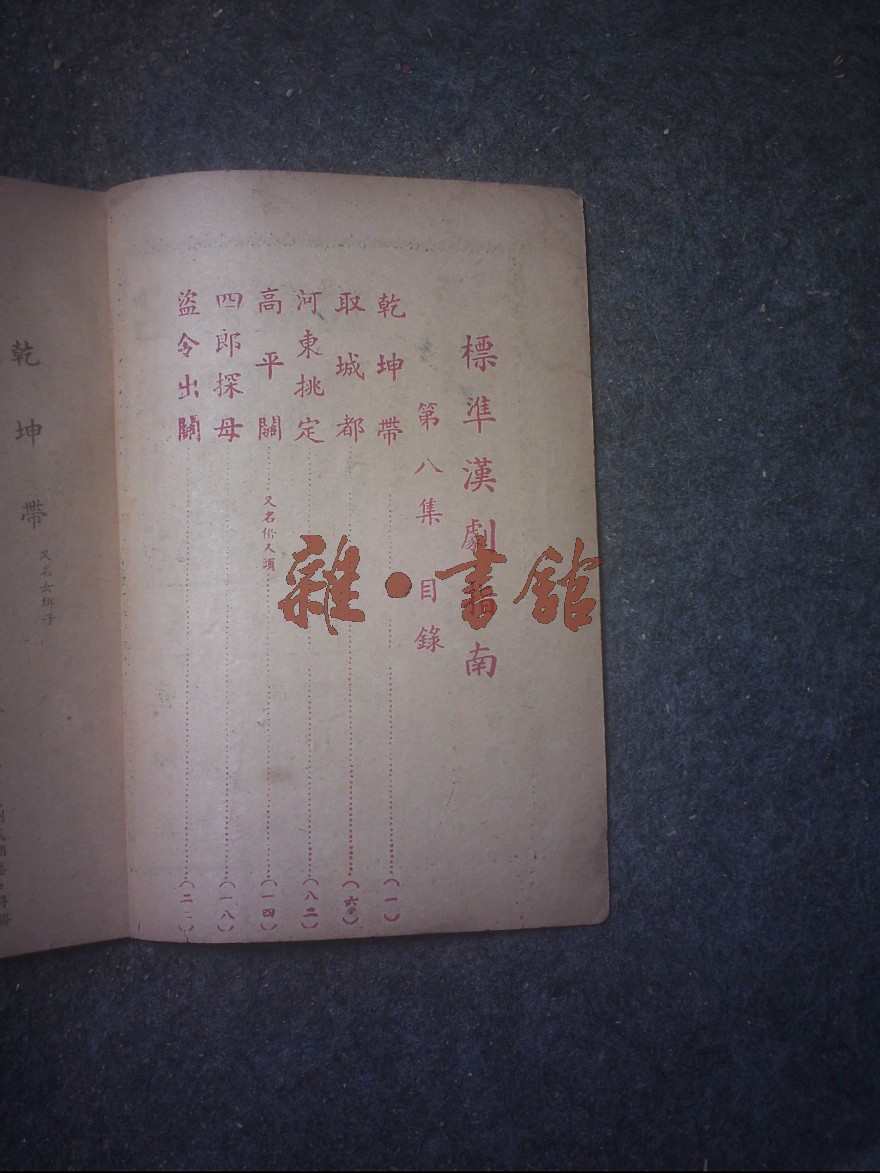 標準漢劇指南
第八集 目錄
乾坤帶……(一)
取城都……(六)
河東挑定……(八二)
高平關 又名借人頭……(一四)
四郎探母……(一八)
盜令出關……(二二)
乾坤帶 又名女綁子
雜·書館